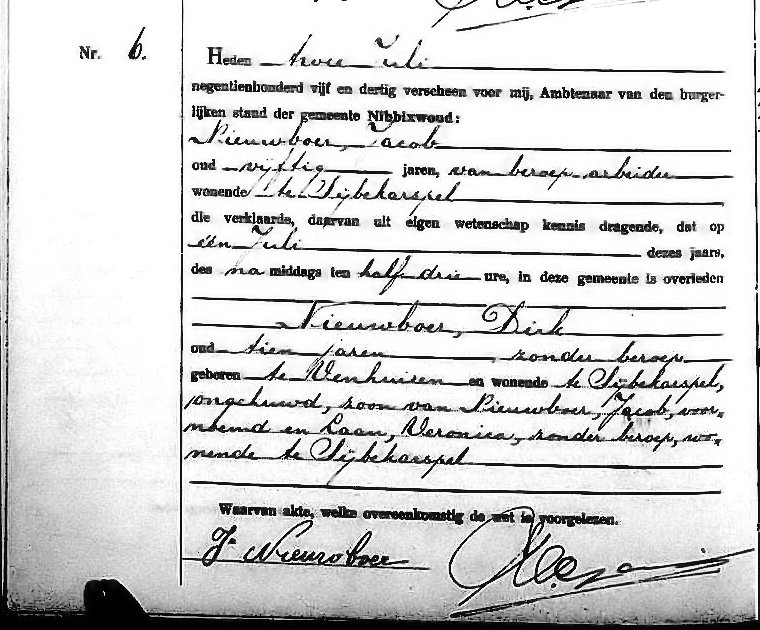 Nr. 6.
Heden twee Juli
negentienhonderd vijf en dertig verscheen voor mij, Ambtenaar van den burger-
lijken stand der gemeente Nibbixwoud:
Nieuwboer, Jacob
oud vijftig jaren, van beroep arbeider
wonende te Sijbekarspel
die verklaarde, daarvan uit eigen wetenschap kennis dragende, dat op
één Juli dezes jaars,
des na middags ten half drie ure, in deze gemeente is overleden
Nieuwboer, Dirk
oud tien jaren, zonder beroep
geboren te Venhuizen en wonende te Sijbekarspel,
ongehuwd, zoon van Nieuwboer, Jacob, voor-
noemd en Laan, Veronica, zonder beroep, wo-
nende te Sijbekarspel
Waarvan akte, welke overeenkomstig de wet is voorgelezen.
J. Nieuwboer